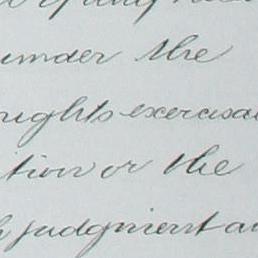 under the
rights exercisa
tion or the
h judgment an